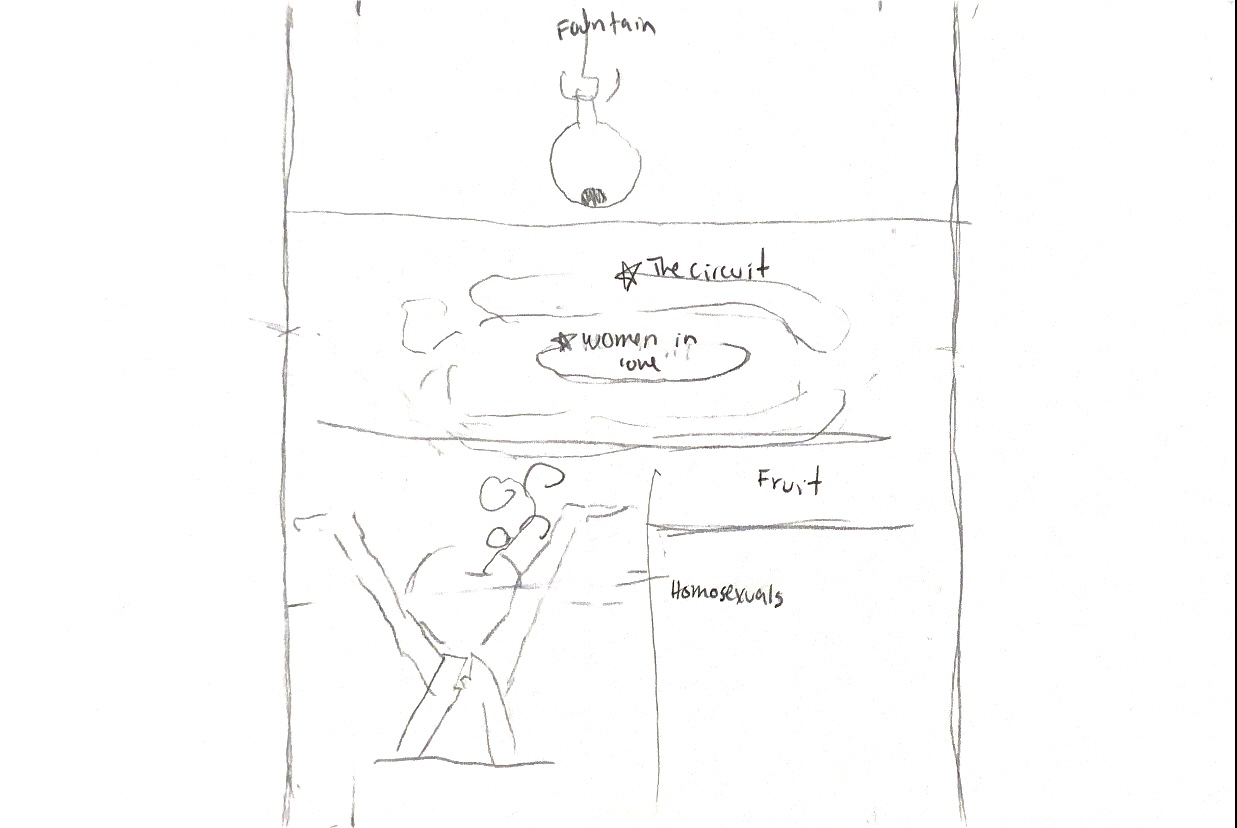 Fountain
The circuit
women in
Fruit
Homosexuals